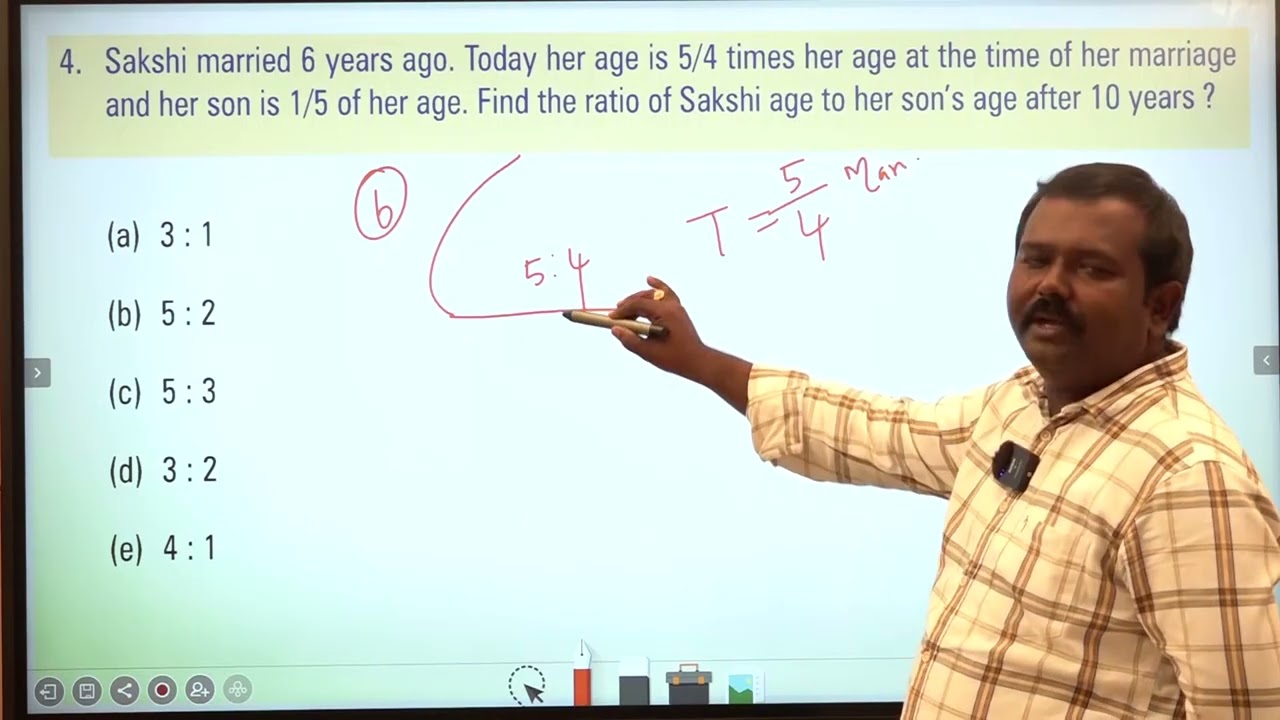 4. Sakshi married 6 years ago. Today her age is 5/4 times her age at the time of her marriage
and her son is 1/5 of her age. Find the ratio of Sakshi age to her son's age after 10 years ?
(a) 3 : 1
(b) 5 : 2
(c) 5 : 3
(d) 3 : 2
(e) 4 : 1
6
5:4
T = 5/4 Marr.